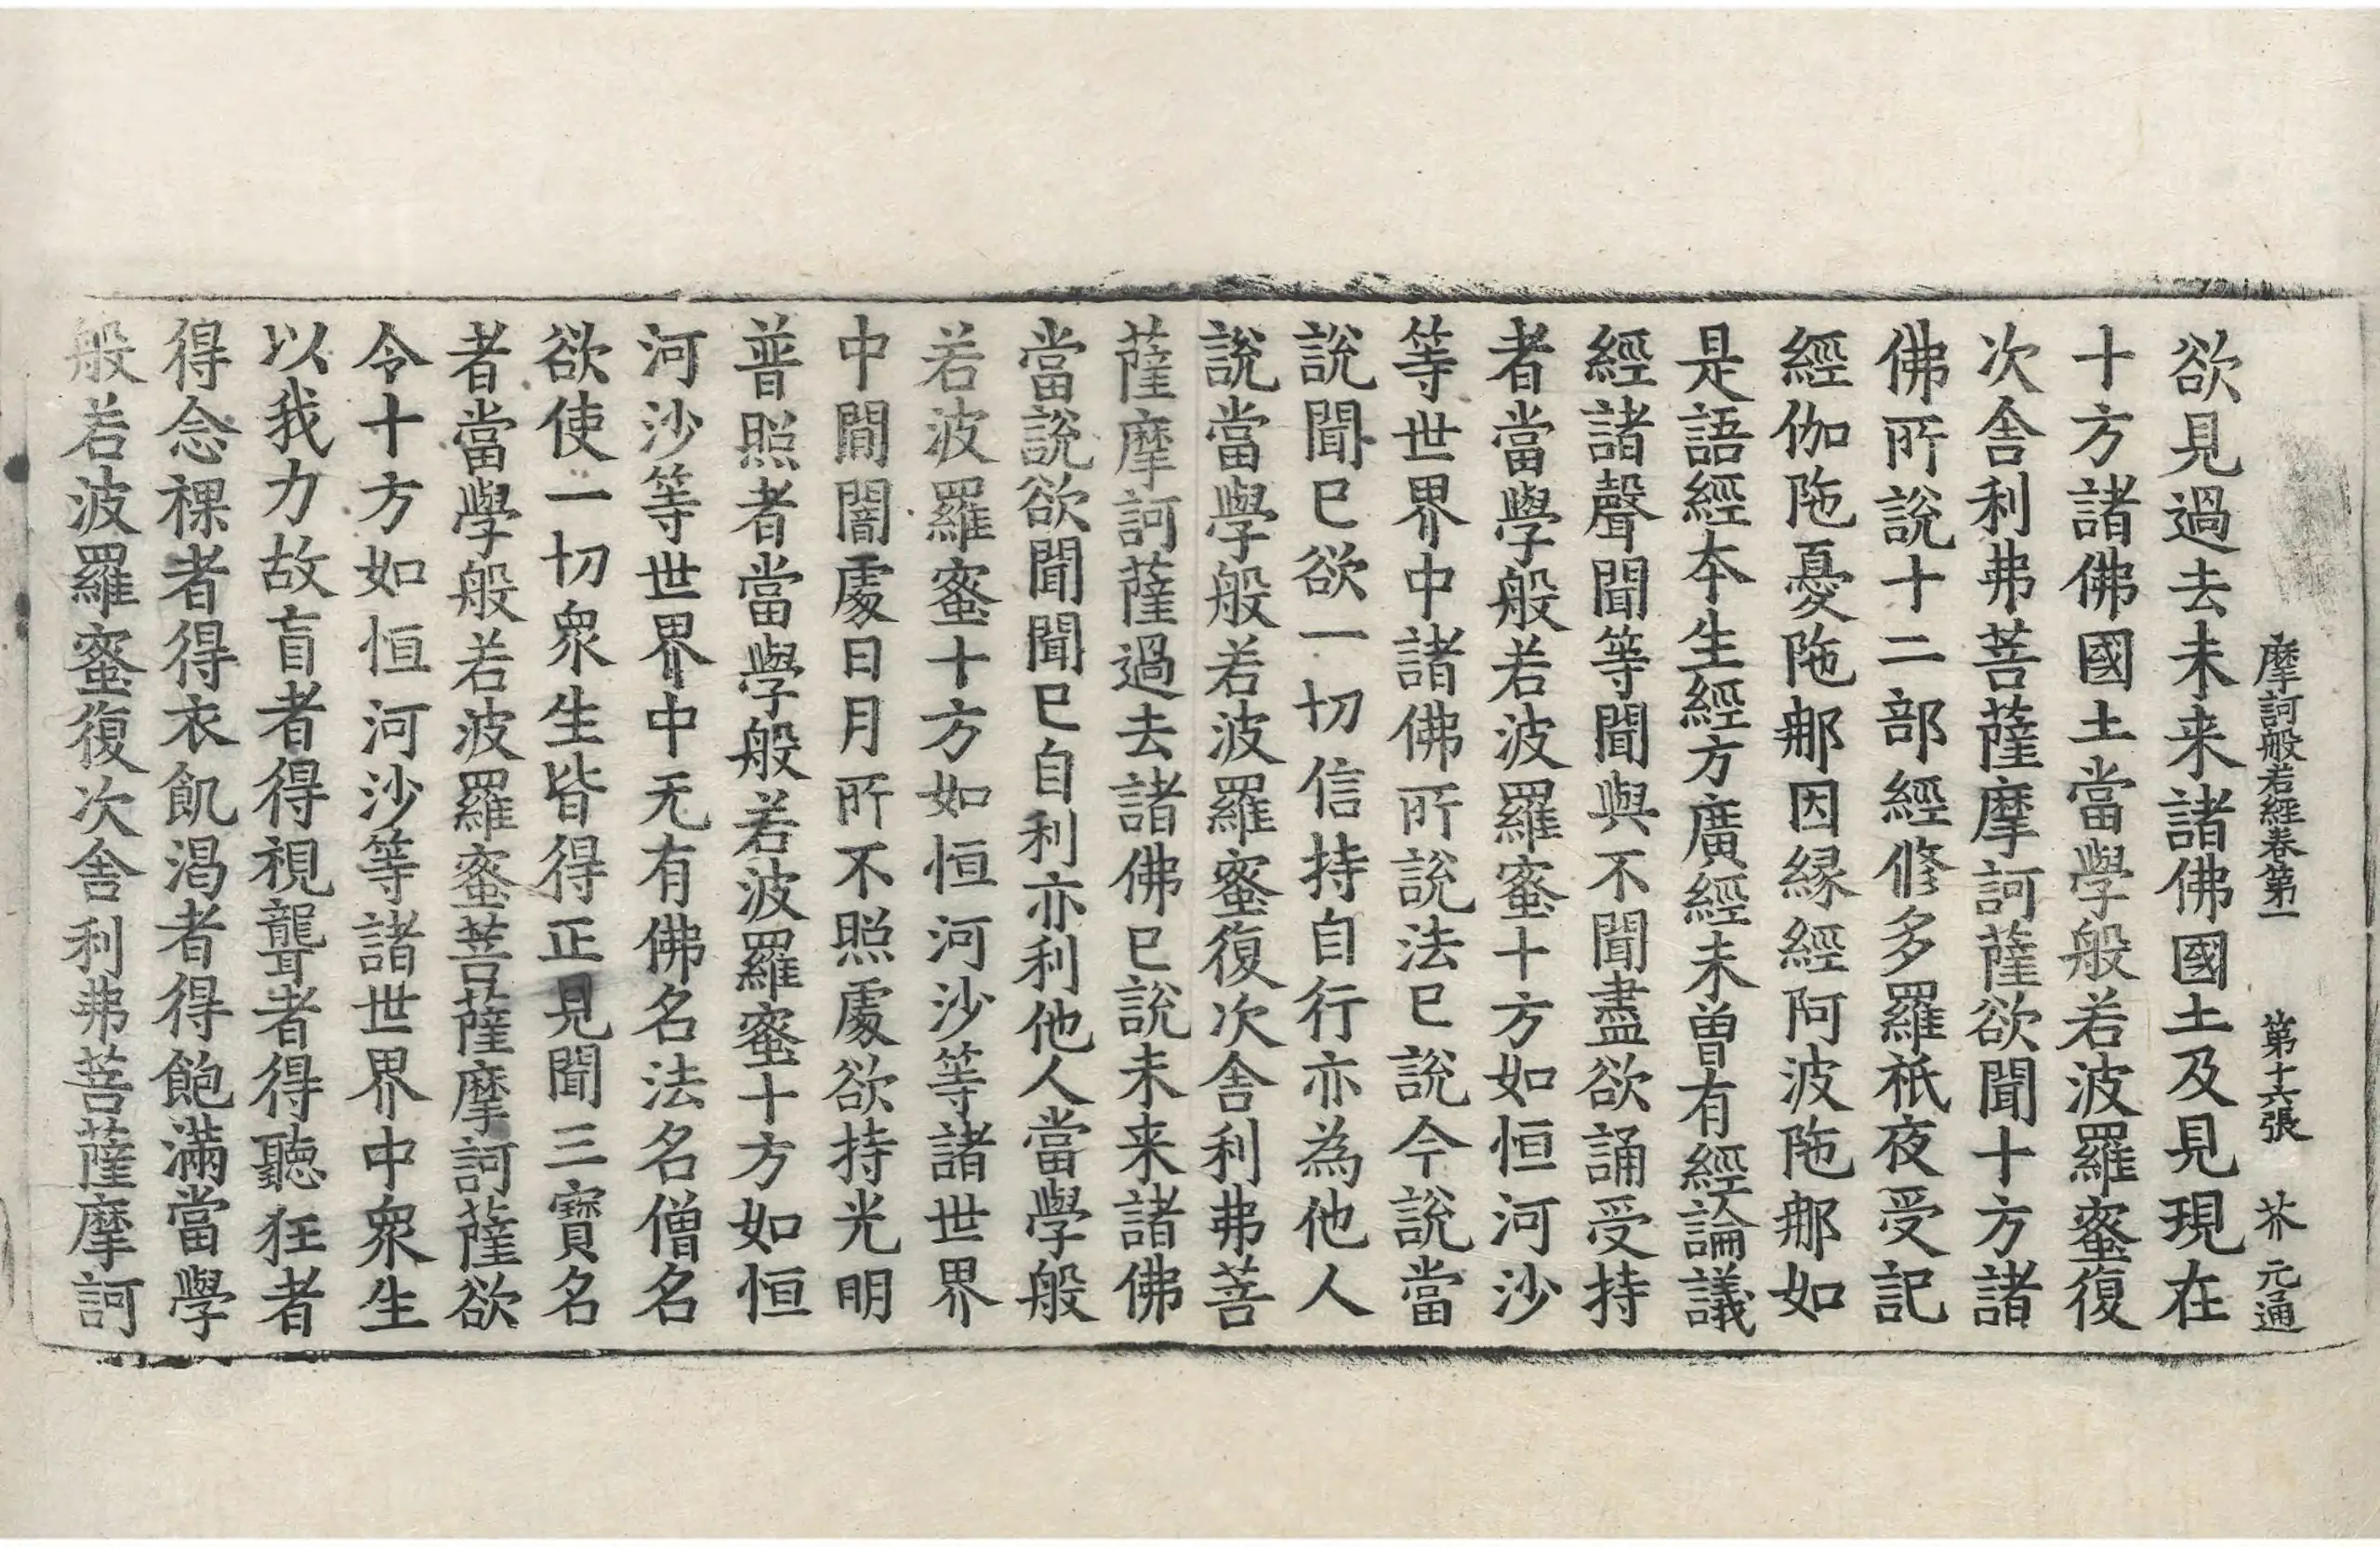 摩訶般若經卷第一 第十六張 芥 元通
欲見過去未来諸佛國土及見現在
十方諸佛國土當學般若波羅蜜復
次舎利弗菩薩摩訶薩欲聞十方諸
佛所說十二部經修多羅祇夜受記
經伽陁憂陁𨙻因縁經阿波陁𨙻如
是語經本生經方廣經未曾有經論議
經諸聲聞等聞與不聞盡欲誦受持
者當學般若波羅蜜十方如恒河沙
等世界中諸佛所說法已說今說當
說聞已欲一切信持自行亦為他人
說當學般若波羅蜜復次舎利弗菩
薩摩訶薩過去諸佛已說未来諸佛
當說欲聞聞已自利亦利他人當學般
若波羅蜜十方如恒河沙等諸世界
中間闇處日月所不照處欲持光明
普照者當學般若波羅蜜十方如恒
河沙等世界中无有佛名法名僧名
欲使一切衆生皆得正見聞三寶名
者當學般若波羅蜜菩薩摩訶薩欲
令十方如恒河沙等諸世界中衆生
以我力故盲者得視聾者得聽狂者
得念裸者得衣飢渴者得飽滿當學
般若波羅蜜復次舎利弗菩薩摩訶